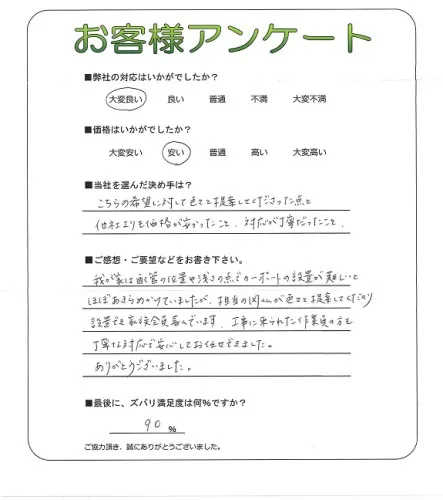 お客様アンケート
■弊社の対応はいかがでしたか？
大変良い 良い 普通 不満 大変不満
■価格はいかがでしたか？
大変安い 安い 普通 高い 大変高い
■当社を選んだ決め手は？
こちらの希望に対して色々と提案してくださった点と
他社よりも価格が安かったこと、対応が丁寧だったこと、
■ご感想・ご要望などをお書き下さい。
我が家は配管の位置や浅さの点でカーポートの設置が難しいと
ほぼあきらめかけていましたが、担当の が色々と提案してくださり
設置でき家族全員喜んでいます、工事に来られた作業員の方も
丁寧な対応で安心してお任せできました。
ありがとうございました。
■最後に、ズバリ満足度は何%ですか？
90 %
ご協力頂き、誠にありがとうございました。